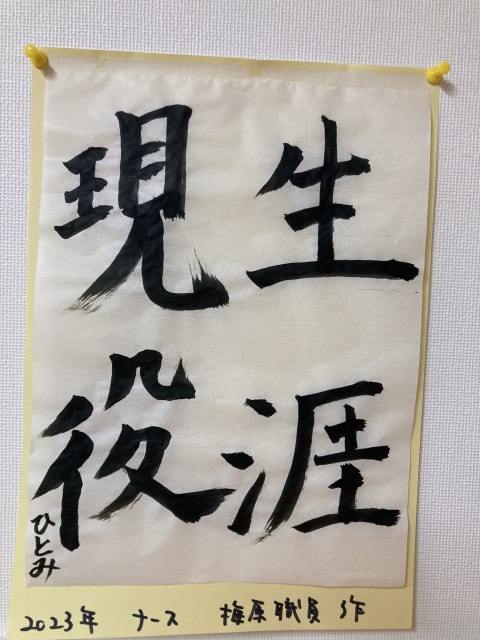 生涯
現役
ひとみ
2023年 ナース 梅原職員 作